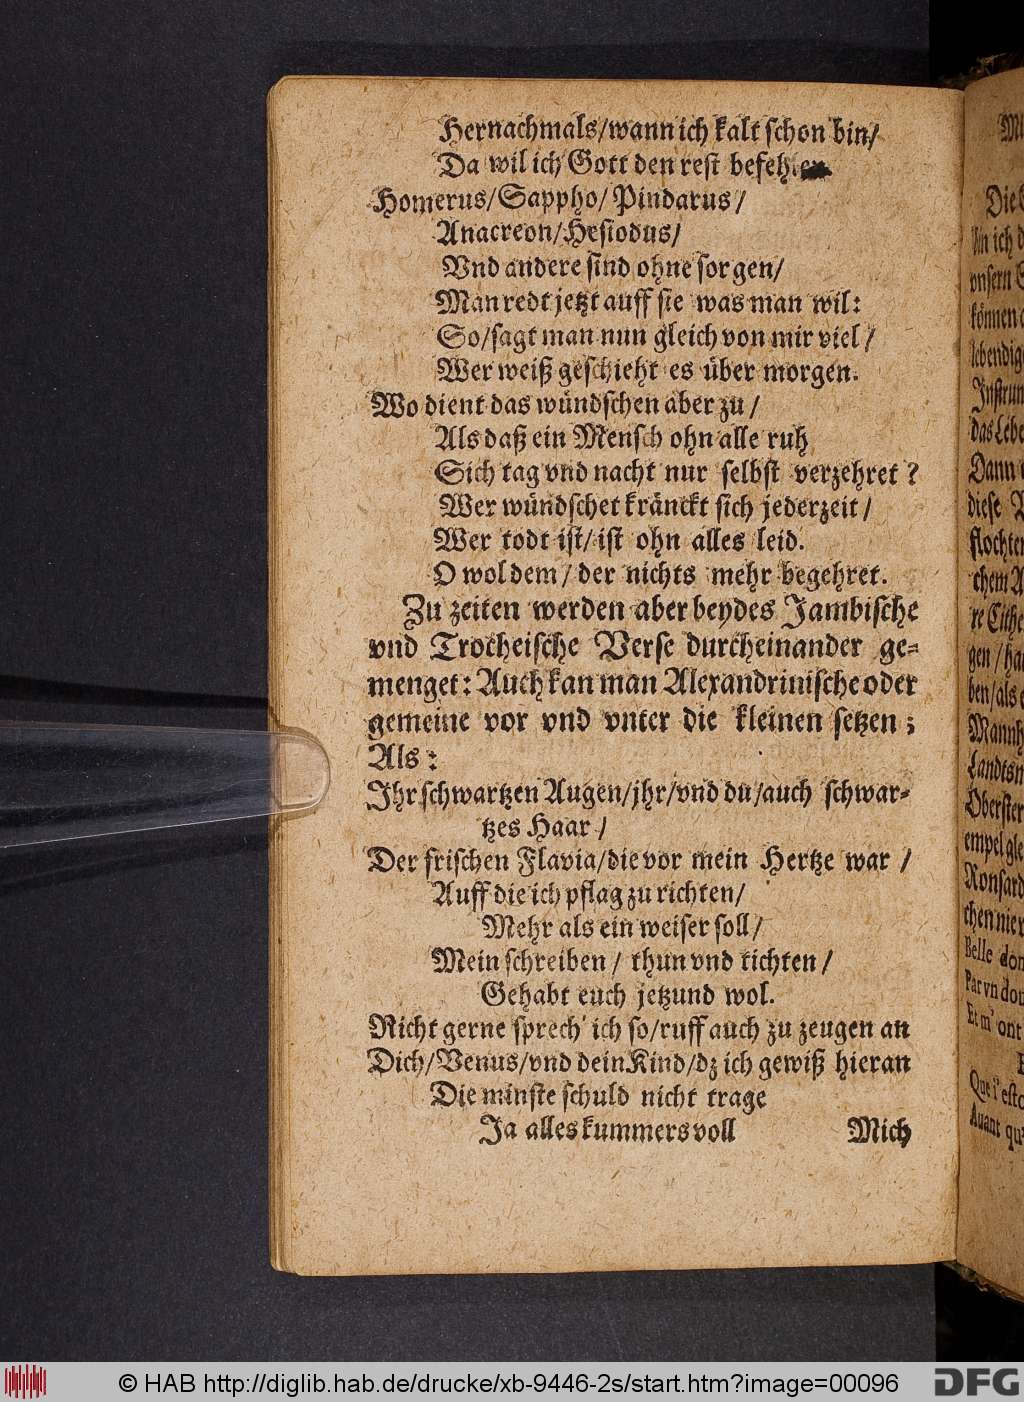 Hernachmals/wann ich kalt schon bin/
Da wil ich Gott den rest
Homerus/Sappho/Pindarus/
Anacreon/Hesiodus/
Vnd andere sind ohne sorgen/
Man redt jetzt auff sie was man wil:
So/sagt man nun gleich von mir viel/
Wer weiß geschieht es über morgen.
Wo dient das wündschen aber zu/
Als daß ein Mensch ohn alle ruh
Sich tag vnd nacht nur selbst verzehret?
Wer wündschet kränckt sich jederzeit/
Wer todt ist/ist ohn alles leid.
O wol dem/der nichts mehr begehret.
Zu zeiten werden aber beydes Jambische
vnd Trocheische Verse durcheinander ge-
menget: Auch kan man Alexandrinische oder
gemeine vor vnd vnter die kleinen setzen;
Als:
Ihr schwartzen Augen/jhr/vnd du/auch schwar-
tzes Haar/
Der frischen Flavia/die vor mein Hertze war/
Auff die ich pflag zu richten/
Mehr als ein weiser soll/
Mein schreiben/thun vnd tichten/
Gehabt euch jetzund wol.
Nicht gerne sprech' ich so/ruff auch zu zeugen an
Dich/Venus/vnd dein Kind/dz ich gewiß hieran
Die minste schuld nicht trage
Ja alles kummers voll
Mich
Die
ich
vnsern
können
lebendig
das Lebe
Dann
diese
flochten
chem
gen/ha
ben/als
Mannh
Landtsm
Oberster
empel gle
Ronsard
chen
Belle don
Par vn dou
Et m'ont
Que i'esto
Auant qu'
© HAB http://diglib.hab.de/drucke/xb-9446-2s/start.htm?image=00096
DFG